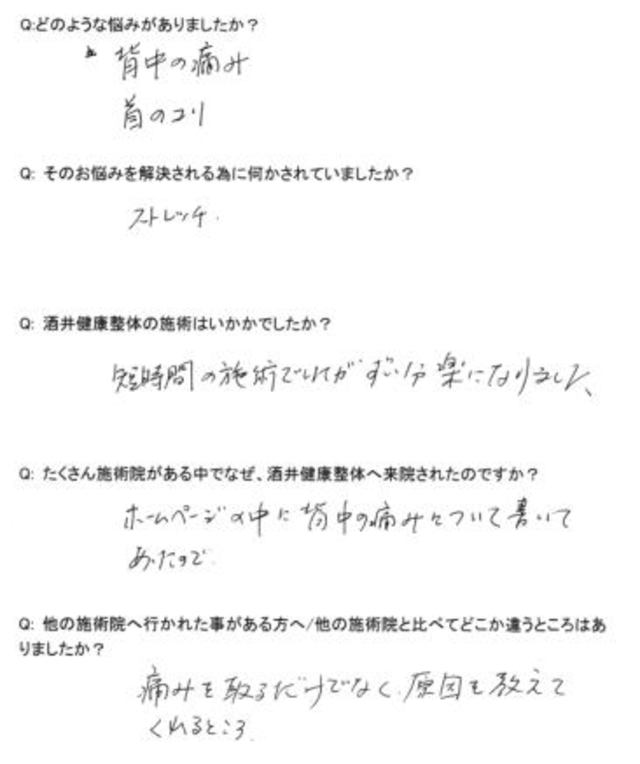 Q:どのような悩みがありましたか？
背中の痛み
首のコリ
Q: そのお悩みを解決される為に何かされていましたか？
ストレッチ.
Q: 酒井健康整体の施術はいかかでしたか？
短時間の施術でしたが ずい分楽になりました、
Q: たくさん施術院がある中でなぜ、酒井健康整体へ来院されたのですか？
ホームページの中に背中の痛みについて書いて
あったので.
Q: 他の施術院へ行かれた事がある方へ/他の施術院と比べてどこか違うところはあ
りましたか？
痛みを取るだけでなく、原因を教えて
くれるところ.